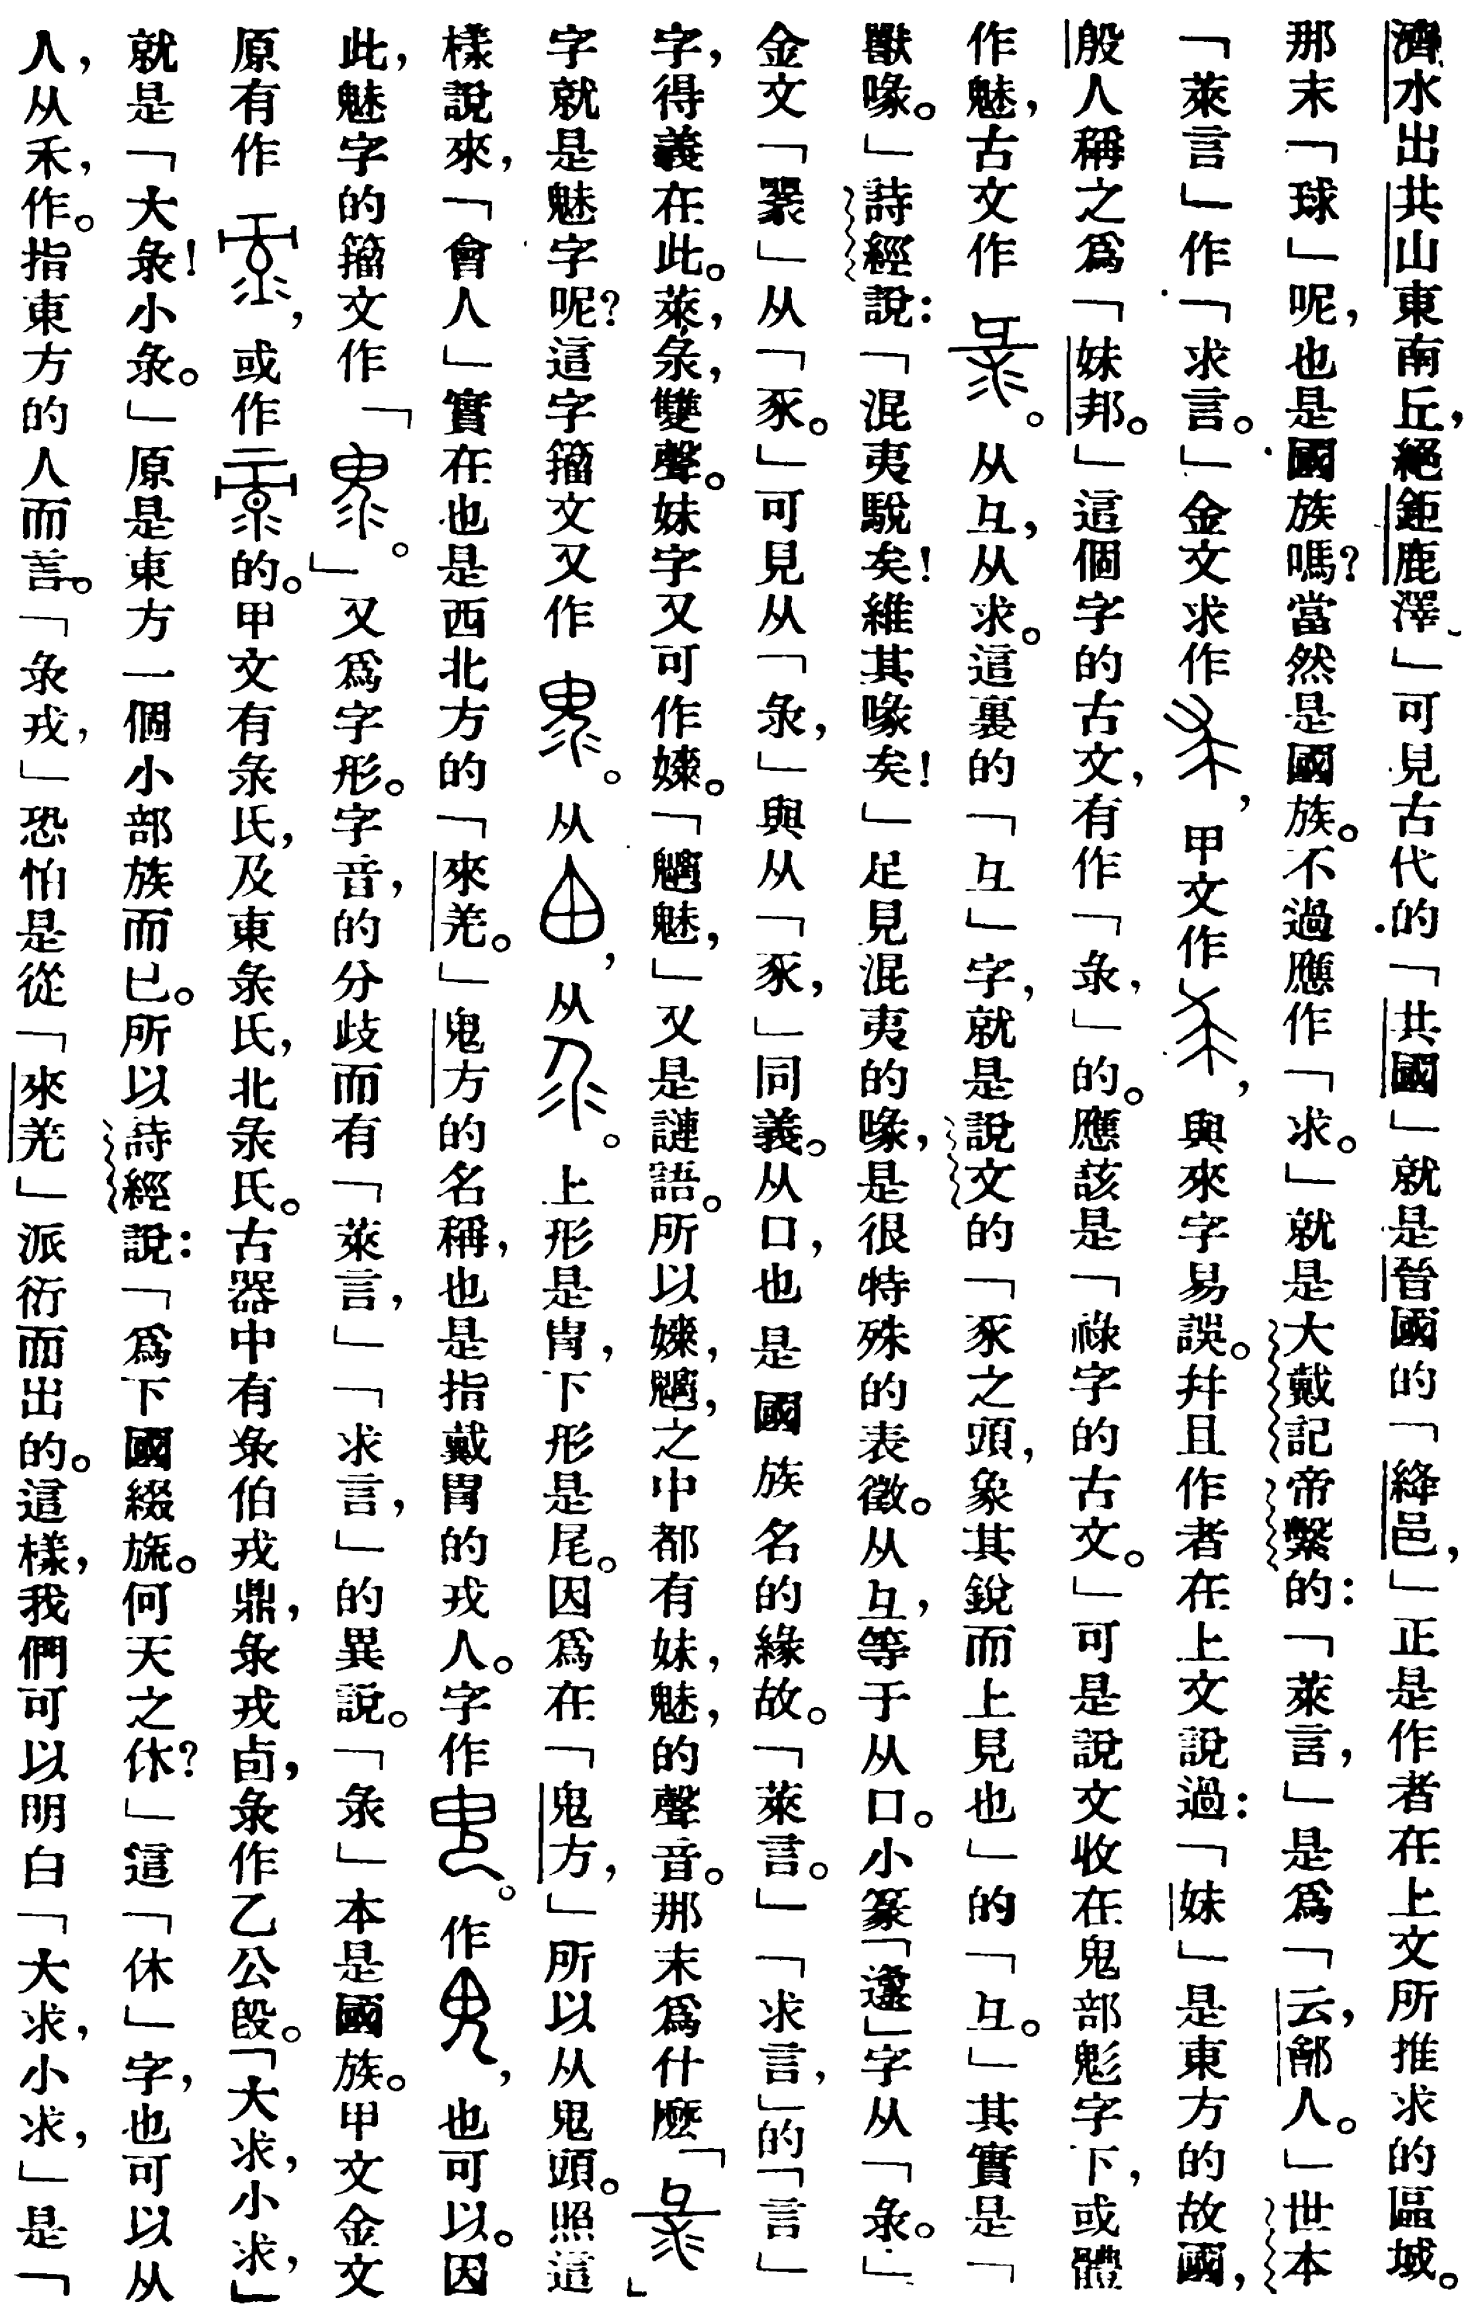 濟水出共山東南丘，絕鉅鹿澤」可見古代的「共國」就是晉國的「絳邑，」正是作者在上文所推求的區域。
那末「球」呢，也是國族嗎？當然是國族。不過應作「求。」就是大戴記帝繫的：「萊言，」是爲「云鄶人。」世本
「萊言」作「求言。」金文求作，甲文作，與來字易誤。幷且作者在上文說過：「妹」是東方的故國，
殷人稱之爲「妹邦。」這個字的古文，有作「彔，」的。應該是「祿字的古文。」可是說文收在鬼部鬽字下，或體
作魅，古文作。从彑，从求。這裏的「彑」字，就是說文的「豕之頭，象其銳而上見也」的「彑。」其實是「
獸喙。」詩經說：「混夷駾矣！維其喙矣！」足見混夷的喙，是很特殊的表徵。从彑，等于从口。小篆「邍」字从「彖。」
金文「」从「豕。」可見从「彖，」與从「豕，」同義。从口，也是國族名的緣故。「萊言。」「求言，」的「言」
字，得義在此。萊，彔，雙聲。妹字又可作婡。「魑魅，」又是謰語。所以婡，魑，之中都有妹，魅，的聲音。那末爲什麼「」
字就是魅字呢？這字籀文又作。从，从。上形是冑，下形是尾。因爲在「鬼方，」所以从鬼頭。照這
樣說來，「會人」實在也是西北方的「來羌。」鬼方的名稱，也是指戴冑的戎人。字作。作，也可以。因
此，魅字的籀文作「。」又爲字形。字音，的分歧而有「萊言，」「求言，」的異說。「彔」本是國族。甲文金文
原有作，或作的。甲文有彔氏，及東彔氏，北彔氏。古器中有彔伯戎鼎，彔戎卣，彔作乙公𣪘。「大求，小求，」
就是「大彔！小彔。」原是東方一個小部族而已。所以詩經說：「爲下國綴旒。何天之休？」這「休」字，也可以从
人，从禾，作。指東方的人而言。「彔戎，」恐怕是從「來羌」派衍而出的。這樣，我們可以明白「大求，小求，」是「